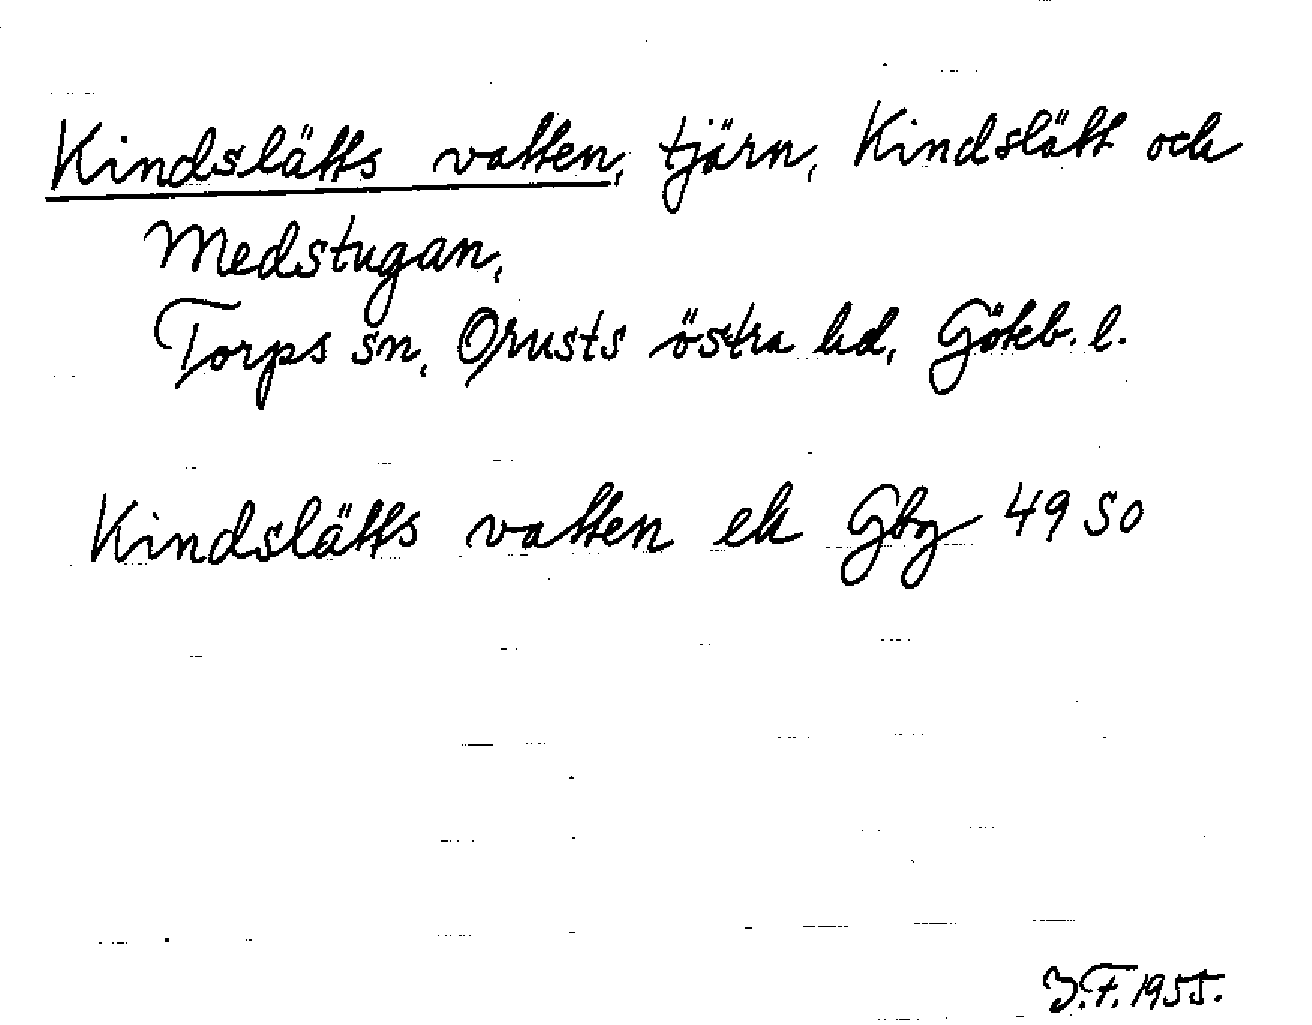 Kindslätts vatten, tjärn, Kindslätt och
Medstugan,
Torps sn, Orusts östra hd, Göteb. l.
Kindslätts vatten ek Gbg 49 50
J.F. 1955.